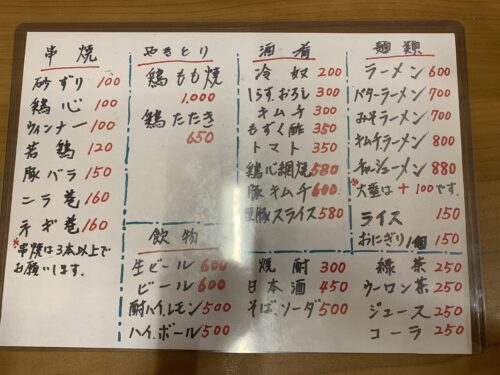 串焼
砂ずり 100
鶏心 100
ウィンナー 100
若鶏 120
豚バラ 150
ニラ巻 160
ネギ巻 160
*串焼は3本以上で
お願いします。
やきとり
鶏もも焼
1.000
鶏たたき
650
酒肴
冷奴 200
しらすおろし 300
キムチ 300
もずく酢 350
トマト 350
鶏心網焼 580
豚キムチ 600
豚スライス 580
麺類
ラーメン 600
バターラーメン 700
みそラーメン 700
キムチラーメン 800
チャーシューメン 880
*大盛は+100です。
ライス 150
おにぎり1個 150
飲物
生ビール 600
ビール 600
酎ハイ.レモン 500
ハイ.ボール 500
焼酎 300
日本酒 450
そば.ソーダ 500
緑茶 250
ウーロン茶 250
ジュース 250
コーラ 250